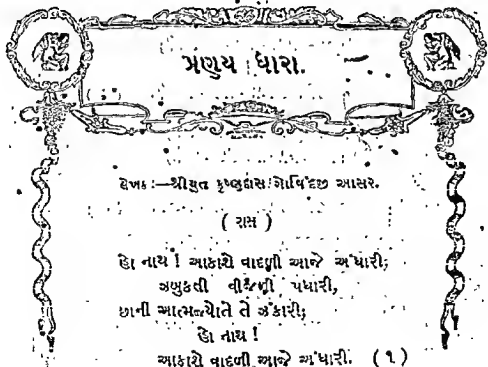 પ્રણય ધારા.
લેખક:—શ્રીયુત કૃષ્ણદાસ ગોવિંદજી આસર.
( રાસ )
હો નાથ ! આકાશે વાદળી આજે અંધારી;
ઝબુકતી વીજળી પધારી,
છાની આત્મજ્યોતે તે ઝંકારી;
હો નાથ !
આકાશે વાદળી આજે અંધારી. (૧)